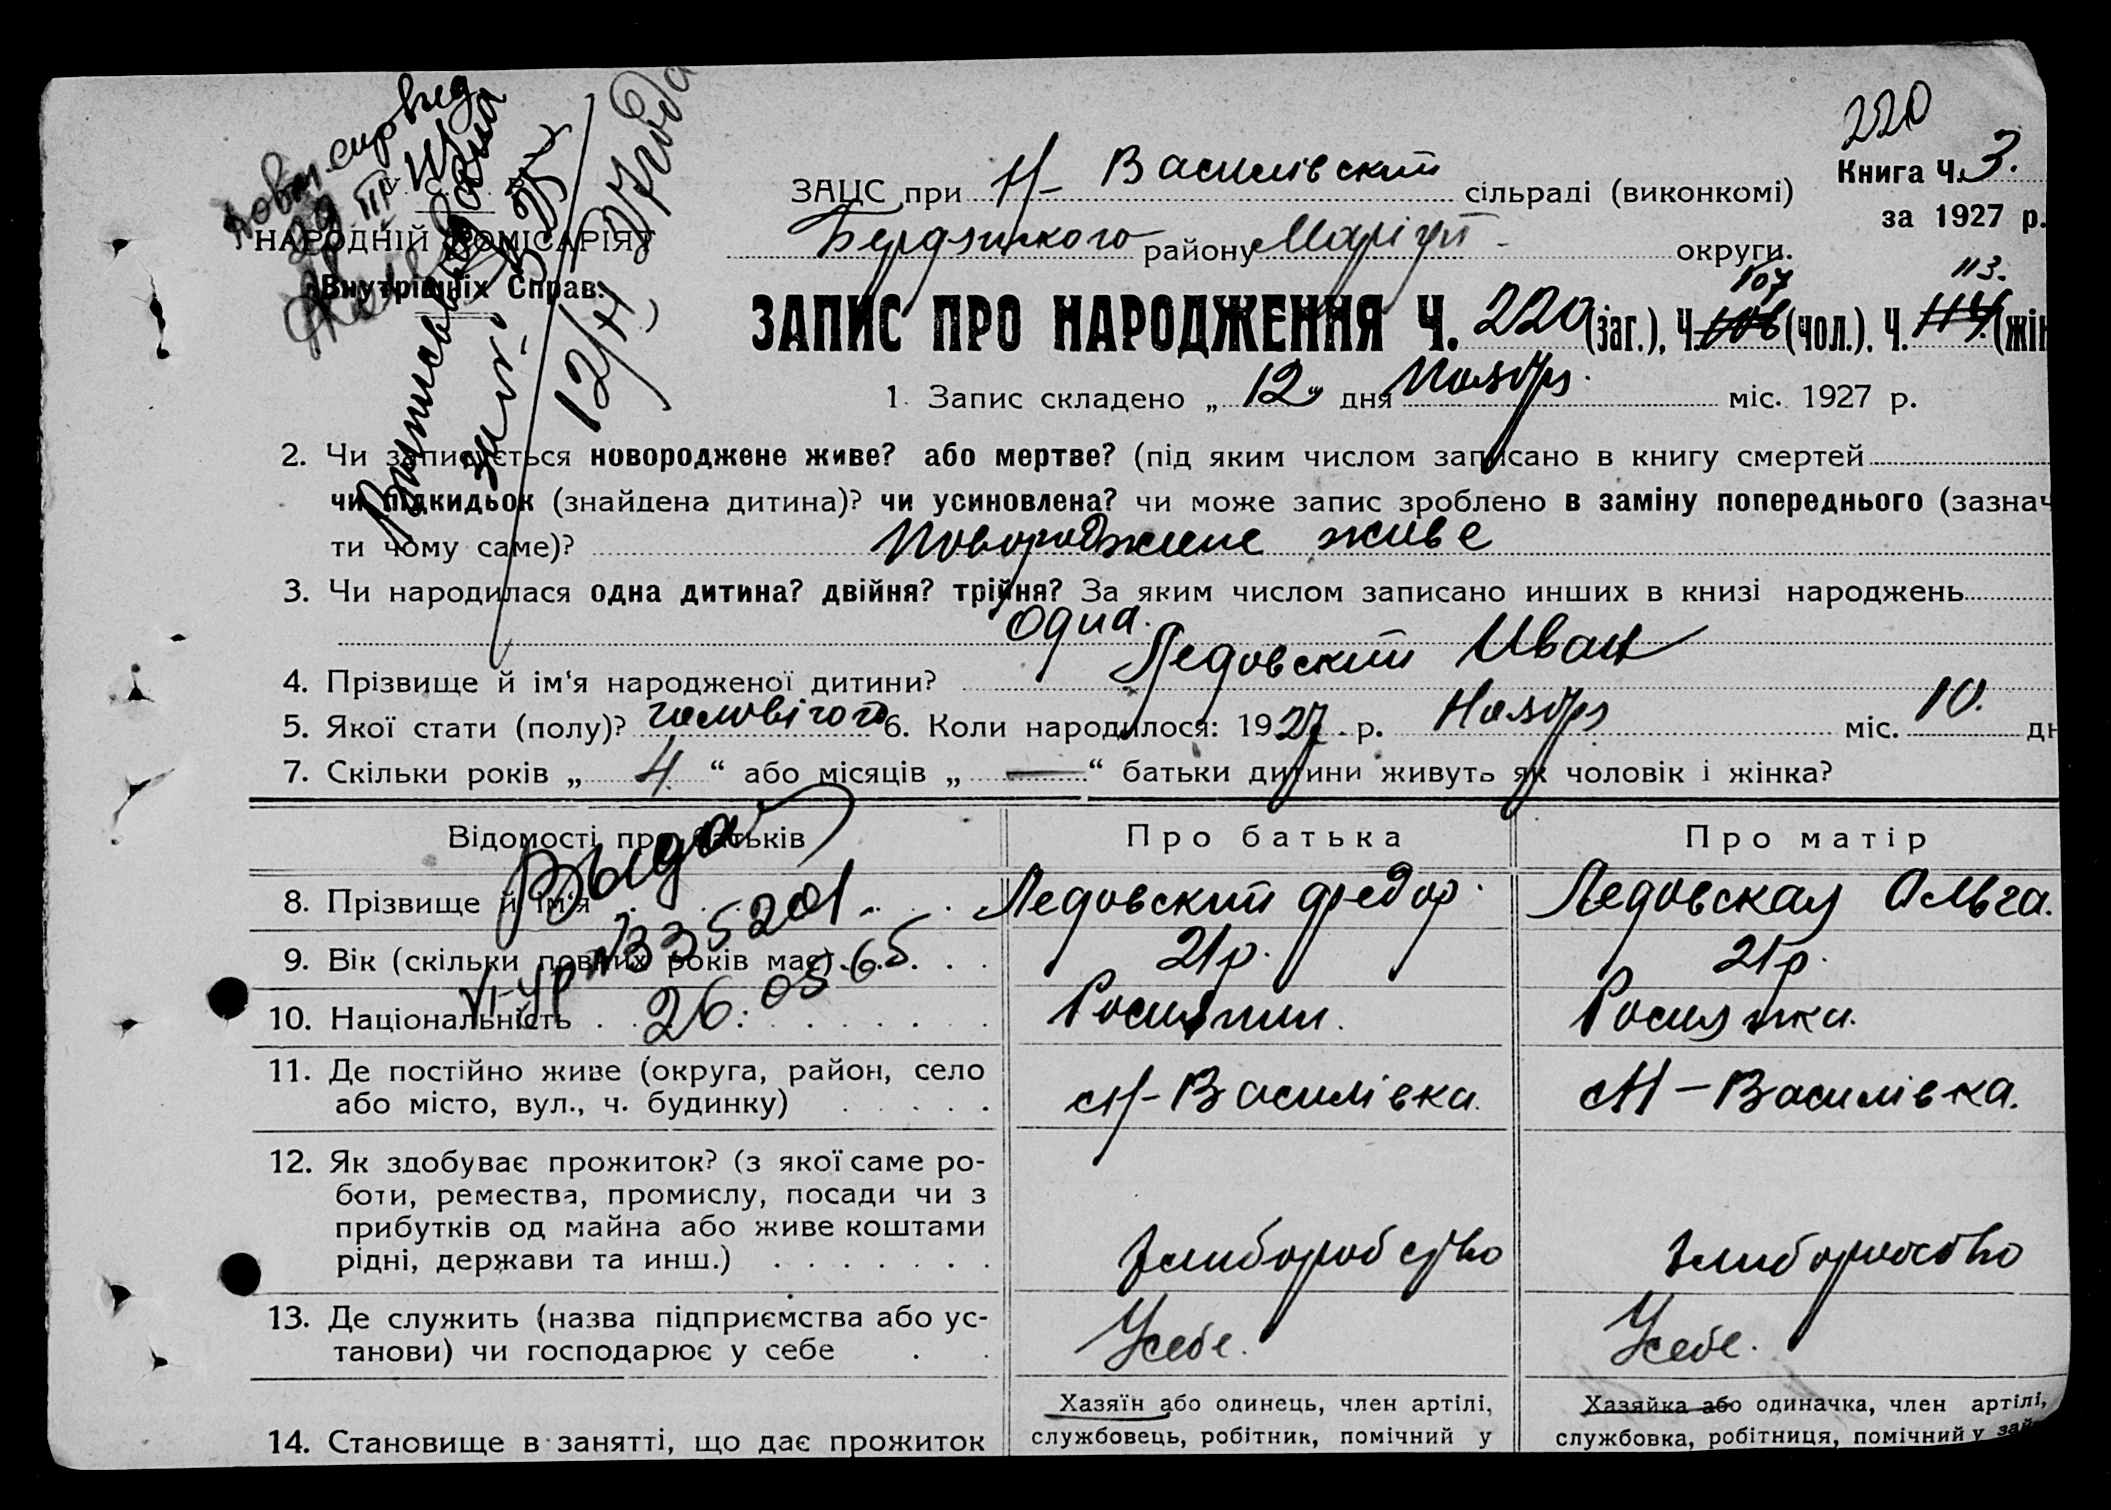 220
Книга Ч. 3.
за 1927 р.
У. С. Р. Р.
НАРОДНІЙ КОМІСАРІЯТ
Внутрішніх Справ.
ЗАЦС при Н-Василівский сільраді (виконкомі)
району Маріуп. округи.
107 113.
ЗАПИС ПРО НАРОДЖЕННЯ Ч. 220 (заг.), Ч. 106 (чол.). Ч. 114 (жін
1. Запис складено „ 12 " дня Ноября міс. 1927 р.
2. Чи записується новороджене живе? або мертве? (під яким числом записано в книгу смертей
чи підкидьок (знайдена дитина)? чи усиновлена? чи може запис зроблено в заміну попереднього (зазнач
ти чому саме)? Новороджене живе
3. Чи народилася одна дитина? двійня? трійня? За яким числом записано инших в книзі народжень
Одна.
4. Прізвище й ім'я народженої дитини? Ледовский Иван
5. Якої стати (полу)? чоловічого 6. Коли народилося: 1927 р. Ноября міс. 10. дн
7. Скільки років „ 4 “ або місяців „ — “ батьки дитини живуть як чоловік і жінка?
Відомості про батьків Про батька Про матір
8. Прізвище й ім'я Ледовский Федор. Ледовская Ольга.
9. Вік (скільки повних років має) 21 р. 21 р.
10. Національність Росиянин. Росиянка.
11. Де постійно живе (округа, район, село
або місто, вул., ч. будинку) Н-Василівка. Н-Василівка.
12. Як здобуває прожиток? (з якої саме ро-
боти, ремества, промислу, посади чи з
прибутків од майна або живе коштами
рідні, держави та инш.)
13. Де служить (назва підприємства або ус-
танови) чи господарює у себе Усебе. Усебе.
Хазяїн або одинець, член артілі, Хазяйка або одиначка, член артілі,
14. Становище в занятті, що дає прожиток службовець, робітник, помічний у службовка, робітниця, помічний у
335201
26. 05 65